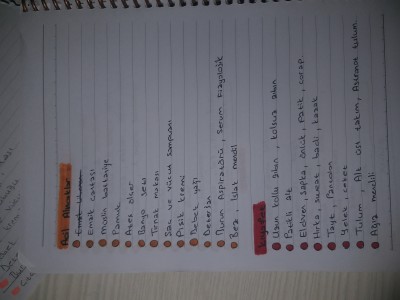 Acil Alınacaklar
Emzik Ulumu
Emzik çantası
Muslin battaniye
Pamuk
Ateş ölçer
Banyo seti
Tırnak makası
Saç ve vücut şampuanı
Pişik kremi
Bebek yağı
Deterjan
Burun Aspiratörü, Serum Fizyolojik
Bez, Islak mendil
Uzun kollu zıbın, kolsuz zıbın
Patikli alt
Eldiven, şapka, önlük, Patik, çorap
Hırka, sweat, badi, kazak
Tayt, Pantolon
Yelek, ceket
Tulum, Alt üst takım, Astronot tulum
Ağız mendili